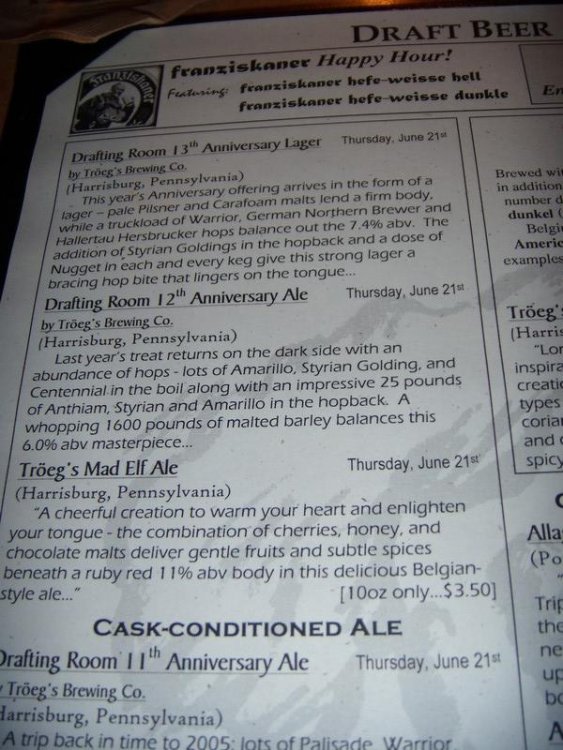 DRAFT BEER
Franziskaner
franziskaner Happy Hour!
Featuring: franziskaner hefe-weisse hell
franziskaner hefe-weisse dunkle
En
Drafting Room 13th Anniversary Lager Thursday, June 21st
by Tröeg's Brewing Co.
(Harrisburg, Pennsylvania)
This year's Anniversary offering arrives in the form of a
lager – pale Pilsner and Carafoam malts lend a firm body,
while a truckload of Warrior, German Northern Brewer and
Hallertau Hersbrucker hops balance out the 7.4% abv. The
addition of Styrian Goldings in the hopback and a dose of
Nugget in each and every keg give this strong lager a
bracing hop bite that lingers on the tongue...
Drafting Room 12th Anniversary Ale Thursday, June 21st
by Tröeg's Brewing Co.
(Harrisburg, Pennsylvania)
Last year's treat returns on the dark side with an
abundance of hops - lots of Amarillo, Styrian Golding, and
Centennial in the boil along with an impressive 25 pounds
of Anthiam, Styrian and Amarillo in the hopback. A
whopping 1600 pounds of malted barley balances this
6.0% abv masterpiece...
Tröeg's Mad Elf Ale Thursday, June 21st
(Harrisburg, Pennsylvania)
"A cheerful creation to warm your heart and enlighten
your tongue - the combination of cherries, honey, and
chocolate malts deliver gentle fruits and subtle spices
beneath a ruby red 11% abv body in this delicious Belgian-
style ale..." [10oz only...$3.50]
CASK-CONDITIONED ALE
Drafting Room 11th Anniversary Ale Thursday, June 21st
y Tröeg's Brewing Co.
Harrisburg, Pennsylvania)
A trip back in time to 2005: lots of Palisade, Warrior
Brewed wi
in addition
number d
dunkel (
Belgi
Americ
examples
Tröeg'
(Harris
"Lor
inspira
creati
types
coria
and
spicy
C
Alla
(Po
Trip
the
ne
up
bo
A